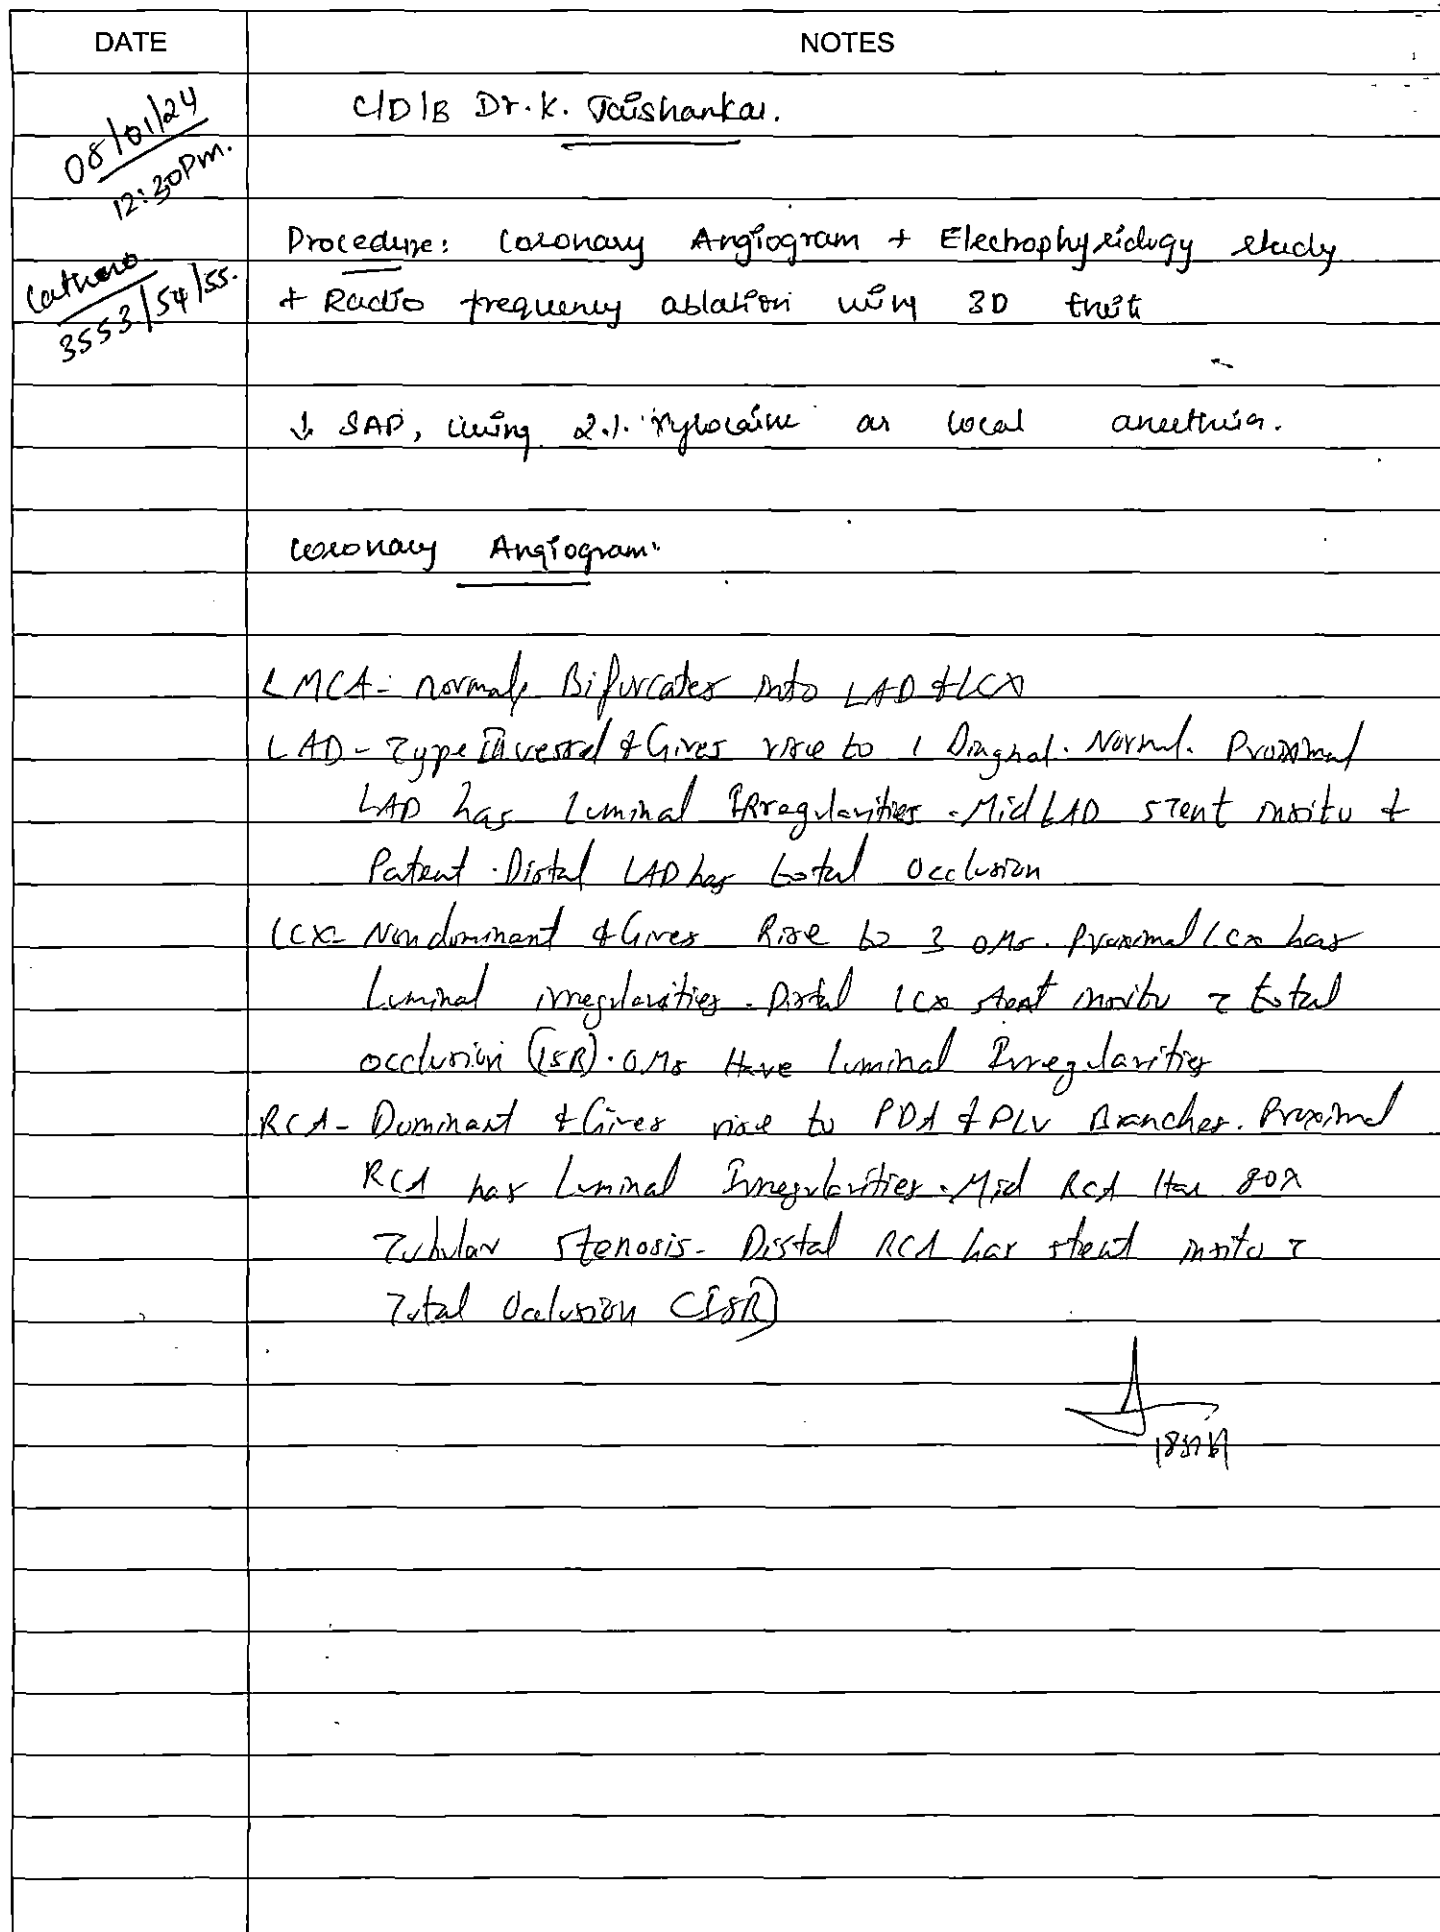 DATE NOTES
08/01/24 C/D/B Dr. K. Jaishankar.
12:30Pm.
Procedure: Coronary Angiogram + Electrophysiology study
Cathno + Radio frequency ablation using 3D
3553/54/55.
↓ SAP, using 2% xylocaine as local anesthesia.
Coronary Angiogram:
LMCA - normal, Bifurcates into LAD & LCX
LAD - Type III vessel & Gives rise to 1 Diagnal. Normal. Proximal
LAD has Luminal IRregularities. Mid LAD stent insitu &
Patent. Distal LAD has total occlusion
LCX - Non dominant & Gives Rise to 3 OMs. Proximal LCX has
Luminal irregularities. Distal LCX stent insitu c total
occlusion (ISR). OMs Have Luminal Irregularities
RCA - Dominant & Gives rise to PDA & PLV Branches. Proximal
RCA has Luminal Irregularities. Mid RCA Has 80%
Tubular Stenosis. Distal RCA has stent insitu c
Total Occlusion (ISR)